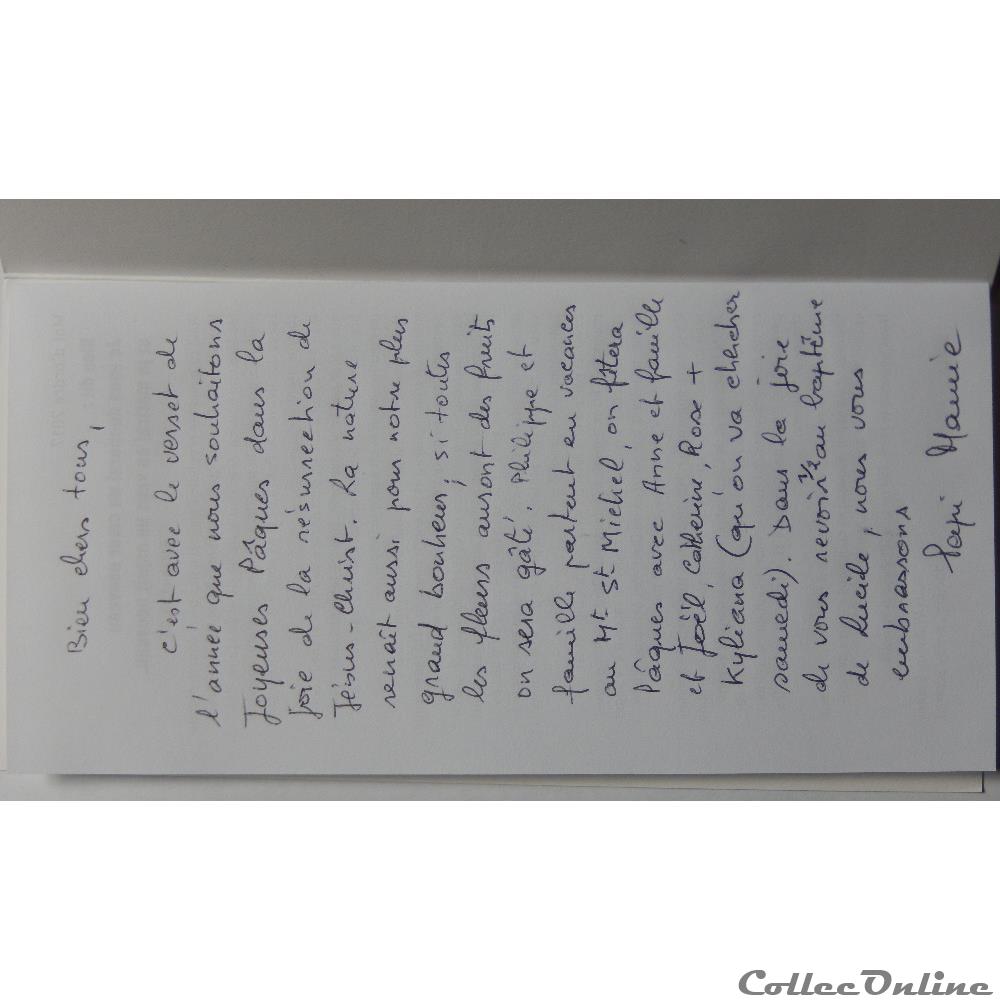 Bien chers tous,
c'est avec le verset de
l'année que nous souhaitons
Joyeuses Pâques dans la
joie de la résurrection de
Jésus-Christ. La nature
renaît aussi pour notre plus
grand bonheur ; si toutes
les fleurs auront des fruits
on sera gâté. Philippe et
famille partent en vacances
au Mt St Michel, on fêtera
Pâques avec Anne et famille
et Joël, Catherine, Rose +
Kyliana (qu'on va chercher
samedi). Dans la joie
de vous revoir au baptême
de Lucile, nous vous
embrassons
Papi Mamie
CollecOnline